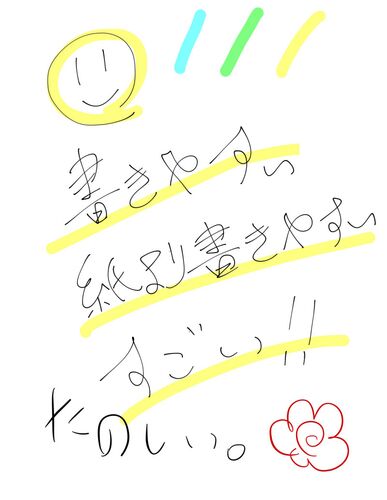 書きやすい
紙より書きやすい
すごい!!
たのしい。